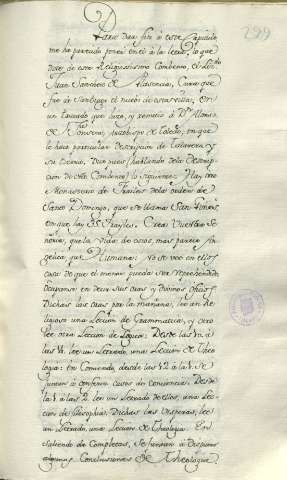 299
Para dar fin à este Capitulo,
me ha parecido poner en él à la letra, lo que
dice de este Religiosissimo Convento, el Lic.do
Juan Sanchez de Plasencia, Cura que
fue de Santiago el nuevo de esta villa, en
un tratado que hizo, y remitio à D.n Alonso
de Fonseca, Arzobispo de Toledo, en que
le hace particular descripcion de Talavera y
su tierra. Dice pues (hablando de la
de este Convento) lo siguiente: Hay un
Monasterio de Frailes de la orden de
Santo Domingo, que se llama San Gines,
en que hay 35 frayles. Crea Vuestra Se-
ñoria, que la vida de esos, mas parece An-
gelica que Humana: no se vee en ellos
cosa de que el menor pueda ser reprehendido.
Ocupanse en decir sus oras y Divinos oficios.
Dichas las oras por la mañana, lee un Re-
ligioso una Leccion de Grammatica, y otro
lee otra Leccion de Logica. Desde las 10 à
las 11 lee un Letrado, una Leccion de Theo-
logia: En Comiendo, desde las 12 à la 1. se
juntan à conferir casos de conciencia. Des-
de la 1 à las 2 lee un Letrado de ellos, una Lec-
cion de Filosophia; Dichas las visperas, lee
un Letrado, una Leccion de Theologia. En
saliendo de Completas, se sientan à Disputar
algunas Conclusiones de Theologia.